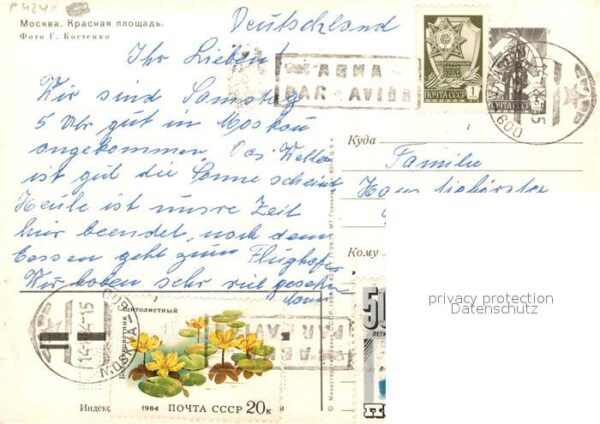 Москва. Красная площадь.
Фото Г. Костенко
Deutschland
Ihr Lieben!
Wir sind Samstag
5 Uhr gut in Moskau
angekommen. Das Wetter
ist gut die Sonne scheint
Heute ist unsre Zeit
hier beendet, nach dem
Essen geht zum Flughafen
Wir haben sehr viel gesehen
АВИА
PAR AVION
ПОЧТА СССР 1
ПОЧТА СССР
600
Куда
Familie
Hans
Кому
privacy protection
Datenschutz
щитолистный
МОСКВА
PAR AVI
50
ЛЕТИ
Индекс
1984 ПОЧТА СССР 20к